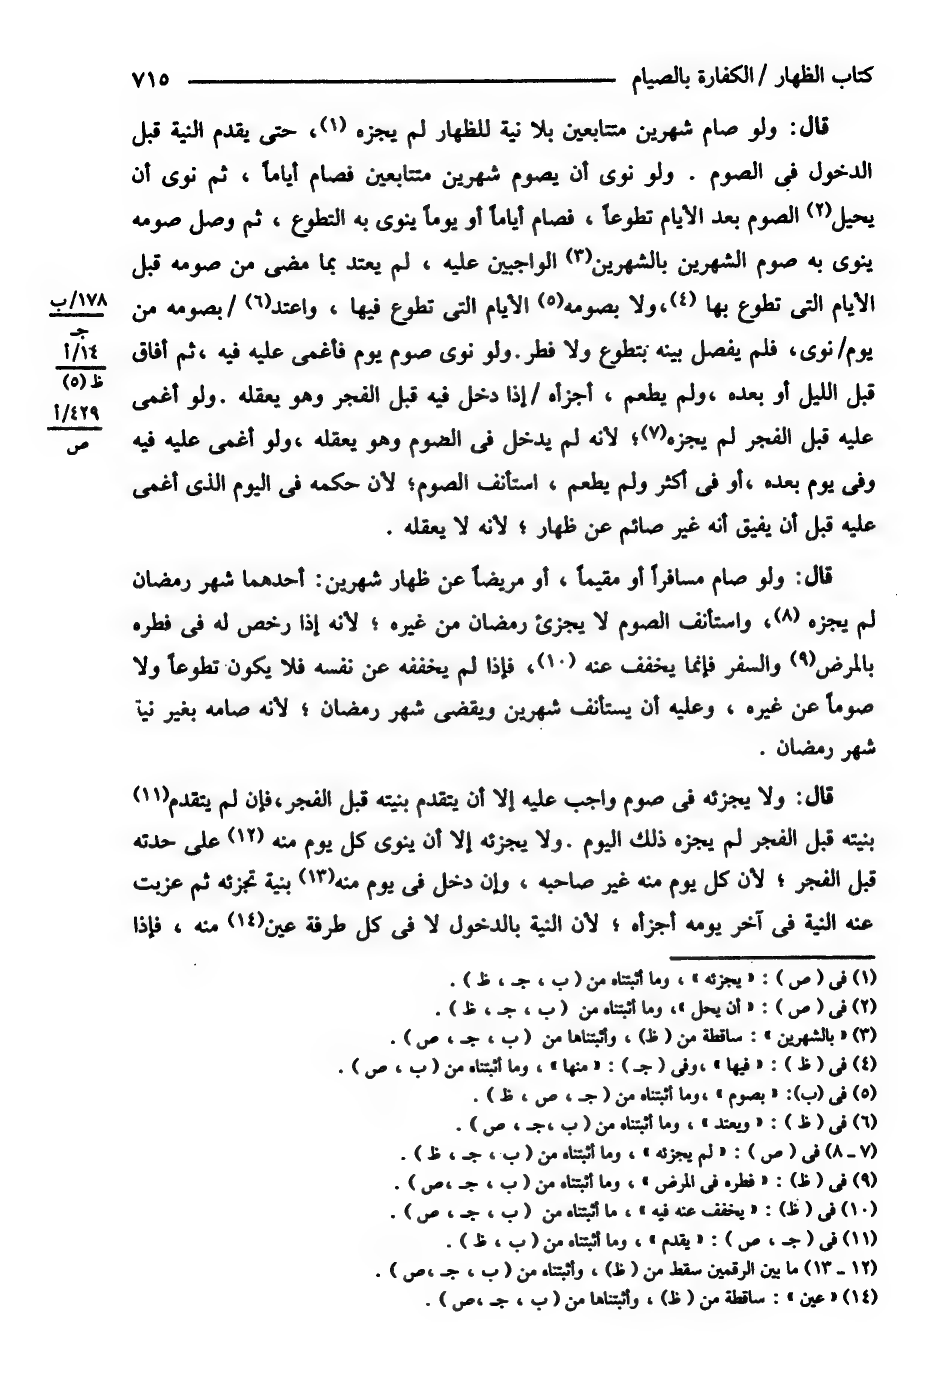 كتاب الظهار / الكفارة بالصيام ٧١٥
قال: ولو صام شهرين متتابعين بلا نية للظهار لم يجزه (١)، حتى يقدم النية قبل
الدخول فى الصوم . ولو نوى أن يصوم شهرين متتابعين فصام أياماً ، ثم نوى أن
يحيل(٢) الصوم بعد الأيام تطوعاً ، فصام أياماً أو يوماً ينوى به التطوع ، ثم وصل صومه
ينوى به صوم الشهرين بالشهرين(٣) الواجبين عليه ، لم يعتد بما مضى من صومه قبل
الأيام التى تطوع بها (٤)،ولا بصومه(٥) الأيام التى تطوع فيها ، واعتد(٦) /بصومه من
يوم/نوى، فلم يفصل بينه بتطوع ولا فطر.ولو نوى صوم يوم فأغمى عليه فيه ،ثم أفاق
قبل الليل أو بعده ،ولم يطعم ، أجزأه /إذا دخل فيه قبل الفجر وهو يعقله .ولو أغمى
عليه قبل الفجر لم يجزه(٧)؛ لأنه لم يدخل فى الصوم وهو يعقله ،ولو أغمى عليه فيه
وفى يوم بعده ،أو فى أكثر ولم يطعم ، استأنف الصوم؛ لأن حكمه فى اليوم الذى أغمى
عليه قبل أن يفيق أنه غير صائم عن ظهار ؛ لأنه لا يعقله .
١٧٨/ب
جـ
١٤/أ
ظ (٥)
٤٢٩/أ
ص
قال: ولو صام مسافراً أو مقيماً ، أو مريضاً عن ظهار شهرين: أحدهما شهر رمضان
لم يجزه (٨)، واستأنف الصوم لا يجزئ رمضان من غيره ؛ لأنه إذا رخص له فى فطره
بالمرض(٩) والسفر فإنما يخفف عنه (١٠)، فإذا لم يخففه عن نفسه فلا يكون تطوعاً ولا
صوماً عن غيره ، وعليه أن يستأنف شهرين ويقضى شهر رمضان ؛ لأنه صامه بغير نية
شهر رمضان .
قال: ولا يجزئه فى صوم واجب عليه إلا أن يتقدم بنيته قبل الفجر،فإن لم يتقدم(١١)
بنيته قبل الفجر لم يجزه ذلك اليوم .ولا يجزئه إلا أن ينوى كل يوم منه (١٢) على حدته
قبل الفجر ؛ لأن كل يوم منه غير صاحبه ، وإن دخل فى يوم منه(١٣) بنية تجزئه ثم عزبت
عنه النية فى آخر يومه أجزأه ؛ لأن النية بالدخول لا فى كل طرفة عين(١٤) منه ، فإذا
(١) فى ( ص ) : « يجزئه » ، وما أثبتناه من ( ب ، جـ ، ظ ) .
(٢) فى ( ص ) : « أن يحل »، وما أثبتناه من ( ب ، جـ ، ظ ) .
(٣) « بالشهرين » : ساقطة من ( ظ) ، وأثبتناها من ( ب ، جـ ، ص ) .
(٤) فى ( ظ ) : « فيها » ،وفى ( جـ ) : « منها » ، وما أثبتناه من ( ب ، ص ) .
(٥) فى (ب): « بصوم » ،وما أثبتناه من ( جـ ، ص ، ظ ) .
(٦) فى ( ظ ) : « ويعتد » ، وما أثبتناه من ( ب ،جـ ، ص ) .
(٧ ـ ٨) فى ( ص ) : « لم يجزئه » ، وما أثبتناه من ( ب ، جـ ، ظ ) .
(٩) فى ( ظ) : « فطره فى المرض » ، وما أثبتناه من ( ب ، جـ ،ص ) .
(١٠) فى ( ظ) : « يخفف عنه فيه » ، ما أثبتناه من ( ب ، جـ ، ص ) .
(١١) فى ( جـ ، ص ) : « يقدم » ، وما أثبتناه من ( ب ، ظ ) .
(١٢ ـ ١٣) ما بين الرقمين سقط من ( ظ) ، وأثبتناه من ( ب ، جـ ،ص ) .
(١٤) « عين » : ساقطة من ( ظ) ، وأثبتناها من ( ب ، جـ ،ص ) .